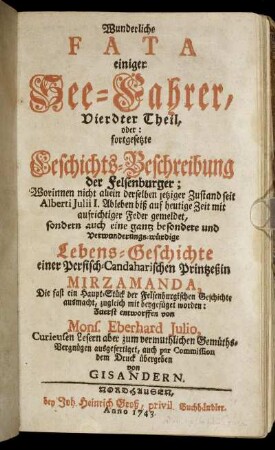 Wunderliche
FATA
einiger
See-Fahrer,
Vierdter Theil,
oder:
fortgesetzte
Geschichts-Beschreibung
der Felsenburger;
Worinnen nicht allein derselben jetziger Zustand seit
Alberti Julii I. Ableben biß auf heutige Zeit mit
aufrichtiger Feder gemeldet,
sondern auch eine gantz besondere und
Verwunderungs-würdige
Lebens-Geschichte
einer Persisch-Candaharischen Printzeßin
MIRZAMANDA,
Die fast ein Haupt-Stück der Felsenburgischen Geschichte
ausmacht, zugleich mit beygefüget worden:
Zuerst entworffen von
Mons. Eberhard Julio,
Curieusen Lesern aber zum vermuthlichen Gemüths-
Vergnügen ausgefertiget, auch par Commission
dem Druck übergeben
von
GISANDERN.
NORDHAUSEN,
bey Joh. Heinrich Groß, privil. Buchhändler.
Anno 1743.